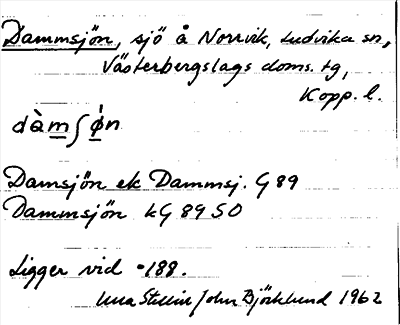 Dammsjön, sjö å Norrvik, Ludvika sn,
Västerbergslags doms. tg,
Kopp. l.
dàmʃǿn
Damsjön ek Dammsj. G 89
Dammsjön kG 89 SO
Ligger vid °188.
John Björklund 1962